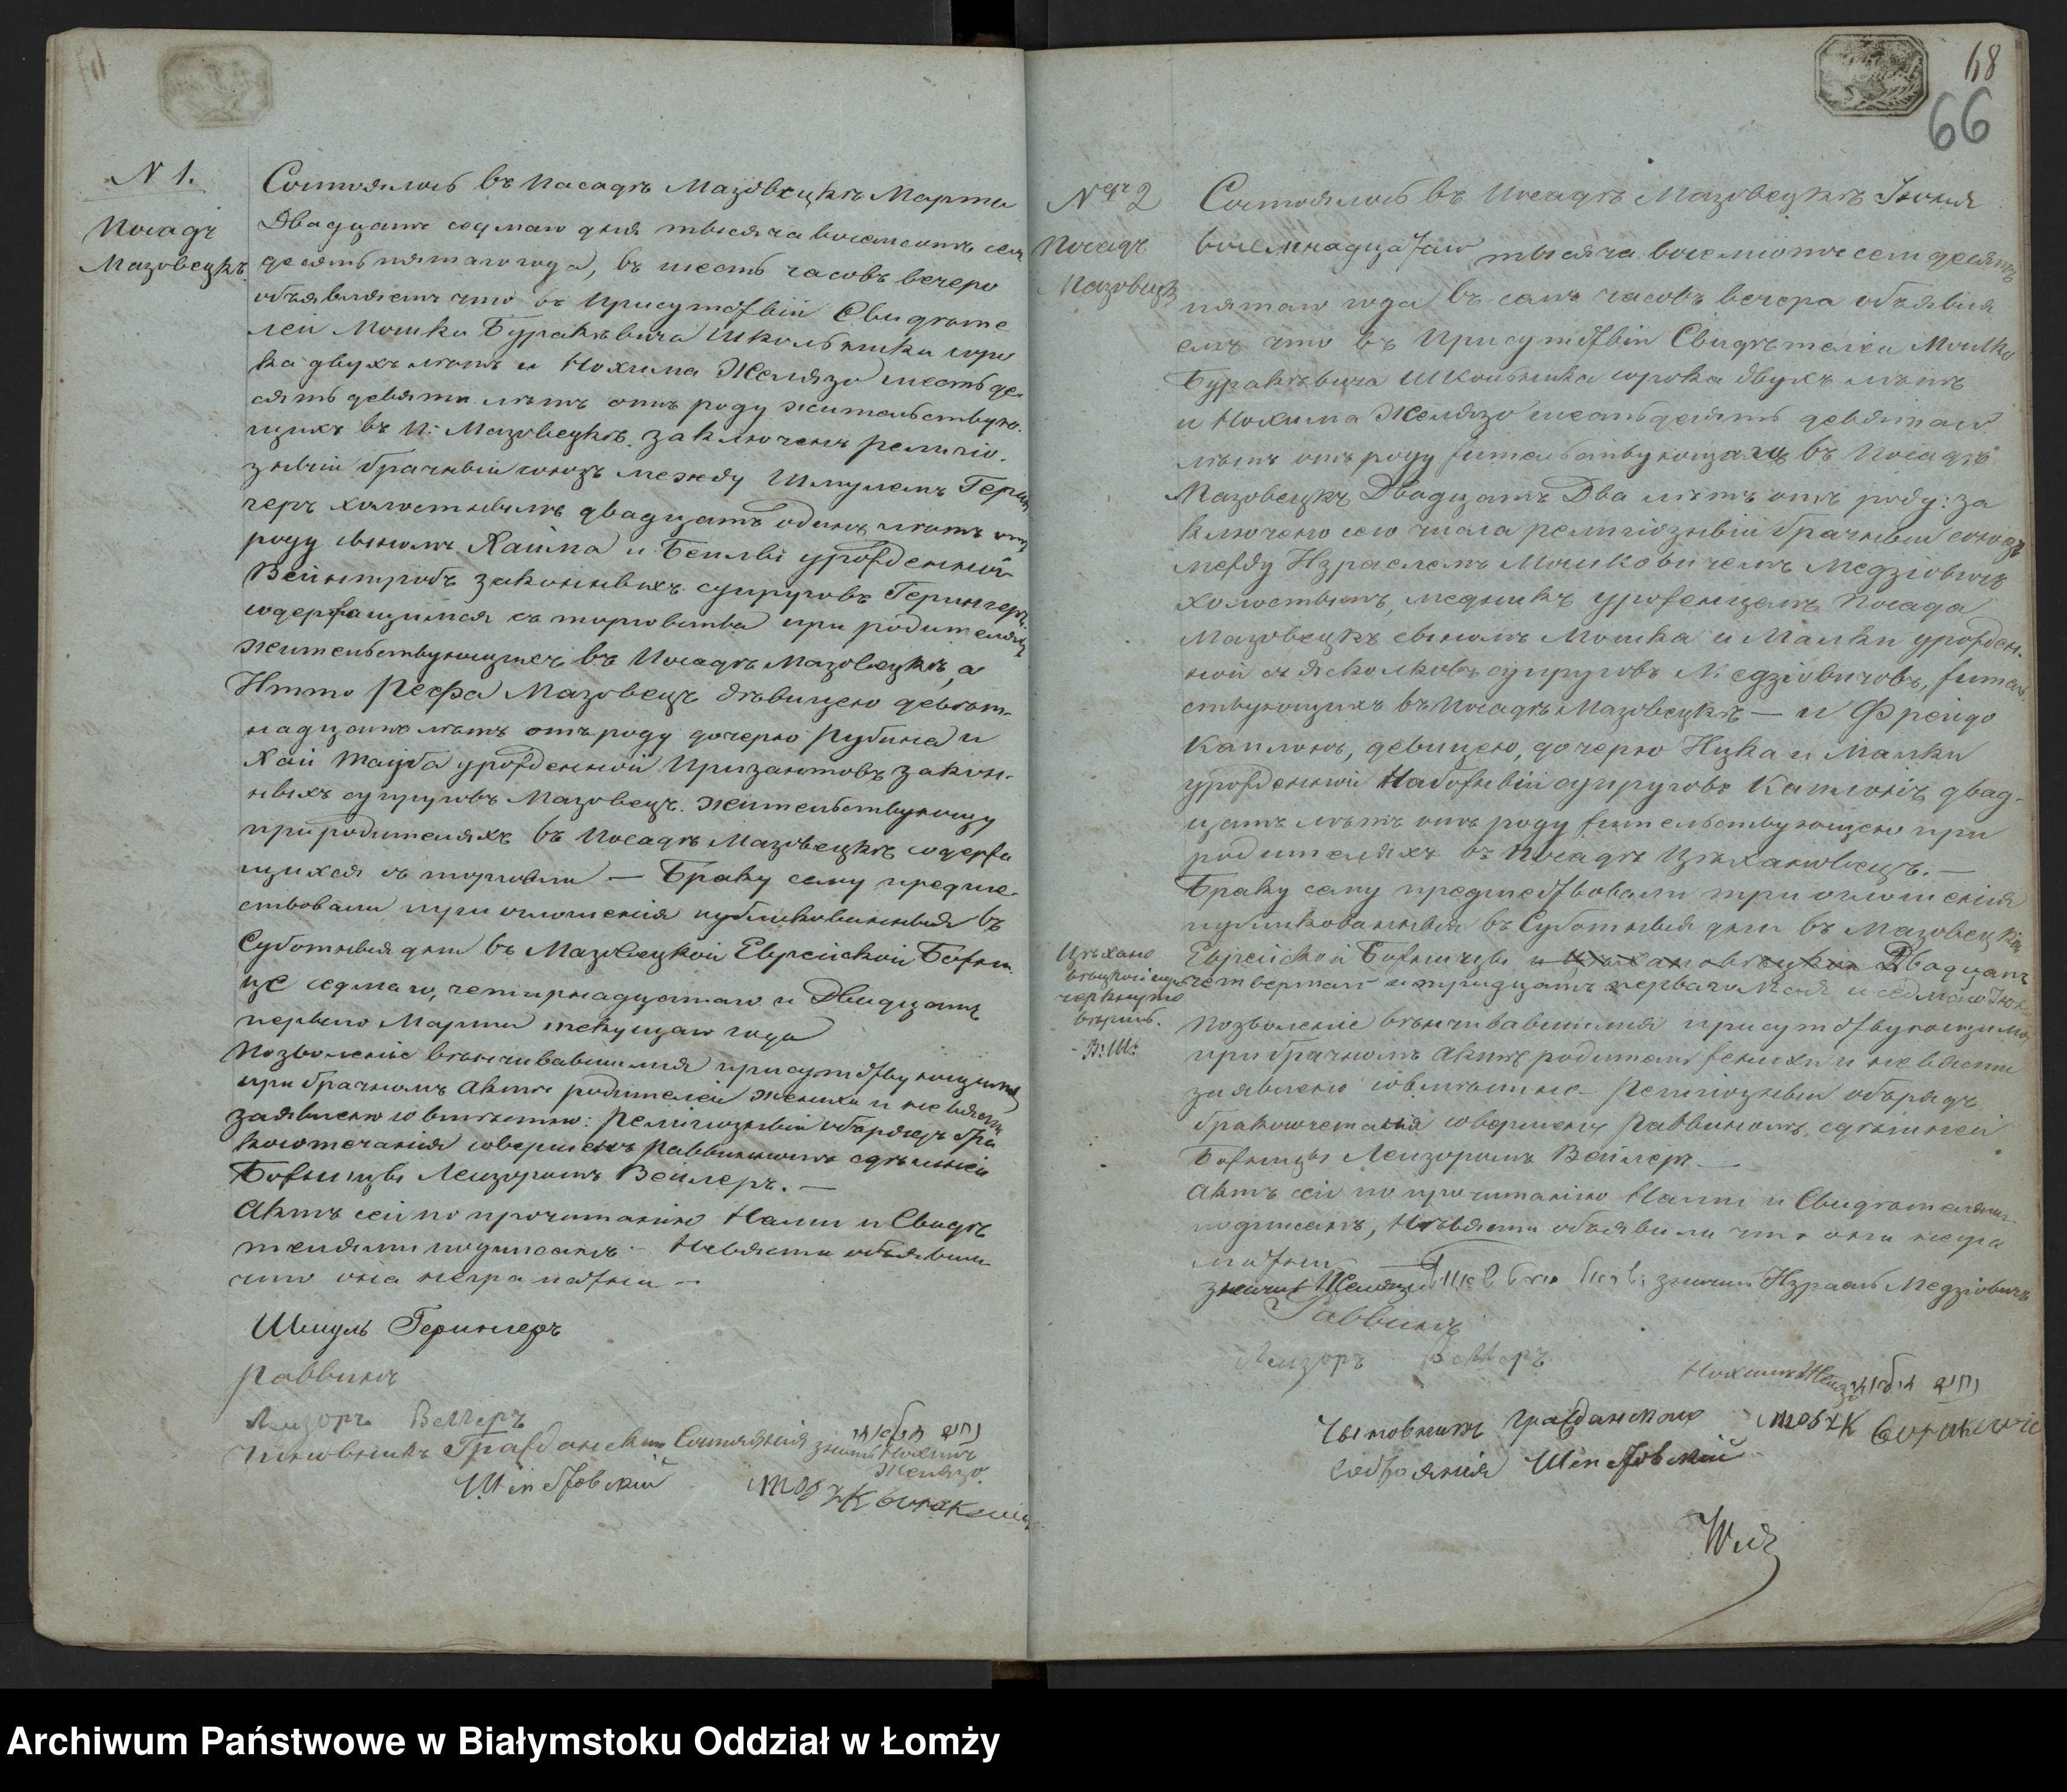 N 1.
Посадъ
Мазовецкъ
Состоялось въ Посадѣ Мазовецкѣ Марта
Двадцать седмаго дня тысяча восемсотъ сем
десять пятаго года, въ шесть часовъ вечера
объявляетъ что въ присутствіи Свидѣте
лей Мошки Буракѣвича Школьника сорo
ка двухъ лѣтъ и Нохима Желязо шесть де-
сять девяти лѣтъ отъ роду жительствую-
щихъ въ П: Мазовецкѣ. заключенъ религіо-
зный брачный союзъ между Шмулемъ Герин
геръ холостымъ двадцать одинъ лѣтъ отъ
роду сыномъ Хаима и Бейлы урожденной
Вейнтробъ законныхъ супруговъ Герингеръ
содержащимся съ торговства при родителяхъ
жительствующихъ въ Посадѣ Мазовецкѣ, а
Итто Рефа Мазовецъ дѣвицею девят-
надцать лѣтъ отъ роду дочерью Рубина и
Хаи Тауба урожденной Призантовъ закон-
ныхъ супруговъ Мазовецъ. жительствующу
при родителяхъ въ Посадѣ Мазовецкѣ содержа
щихся съ торговли — Браку сему предше-
ствовали три оглошенія публикованныя въ
Суботныя дни въ Мазовецкой Еврейской Божни
це седмаго, четырнадцатаго и Двадцать
перваго Марта текущаго года
Позволеніе вѣнчивавшимся присутствующими
при брачномъ Актѣ родителей жениха и невѣсты
заявлено словѣстно: Религіозный обрядъ бра
косочетанія совершенъ Раввиномъ здѣшней
Божницы Лейзоромъ Веллеръ. —
Актъ сей по прочитанію Нами и Свидѣ
телями подписанъ — Невѣста объявила
что она неграмотна —
Шмуль Герингеръ
Раввинъ
Лейзоръ Веллеръ
Чиновникъ Гражданскаго Состоянія
знач: Нохимъ
Желязо
68
66
N 2
Посадъ
Мазовецкъ
Состоялось въ Посадѣ Мазовецкѣ Іюня
восемнадцатаго тысяча восемсотъ семдесять
пятаго года въ семъ часовъ вечера объявля
емъ что въ присутствіи Свидѣтелей Мошко
Буракѣвича Школьника сорока двухъ лѣтъ
и Нохима Желязо шестьдесять девятаго
лѣтъ отъ роду жительствующихъ въ Посадѣ
Мазовецкѣ Двадцать Два лѣтъ отъ роду: за
ключено сего числа религіозный брачный союзъ
между Израелемъ Мошковичемъ Медзіовичъ
холостымъ, медникъ уроженцемъ Посада
Мазовецкъ сыномъ Мошка и Малки урожден-
ной супруговъ Медзіовичовъ, житель
ствующихъ въ Посадѣ Мазовецкѣ — и Фрейдо
Капланъ, девицею, дочерью Ицка и Малки
урожденной супруговъ Капланъ, двад-
цать лѣтъ отъ роду жительствующею при
родителяхъ въ Посадѣ Цѣхановецъ. —
Браку сему предшествовали три оглошенія
публикованныя въ Суботныя дни въ Мазовецкой
Еврейской Божницы и Цѣхановѣцкой Двадцать
четвертаго и тридцать перваго Мая и седмаго Іюн
Позволеніе вѣнчивавшимся присутствующими
при брачномъ Актѣ родителями жениха и невѣсты
заявлено словѣстно — Религіозный обрядъ
бракосочетанія совершенъ Раввиномъ здѣшней
Божницы Лейзоромъ Веллеръ —
Актъ сей по прочитанію Нами и Свидѣтелями
подписанъ, Невѣста объявила что она негра
мотна —
значит Израель Медзіовичъ
Раввинъ
Лейзоръ Веллеръ
Нохимъ Желязо
Чиновникъ Гражданскаго
Состоянія
Цѣхано
вѣцкой
черкнуто
вѣрно.
Archiwum Państwowe w Białymstoku Oddział w Łomży